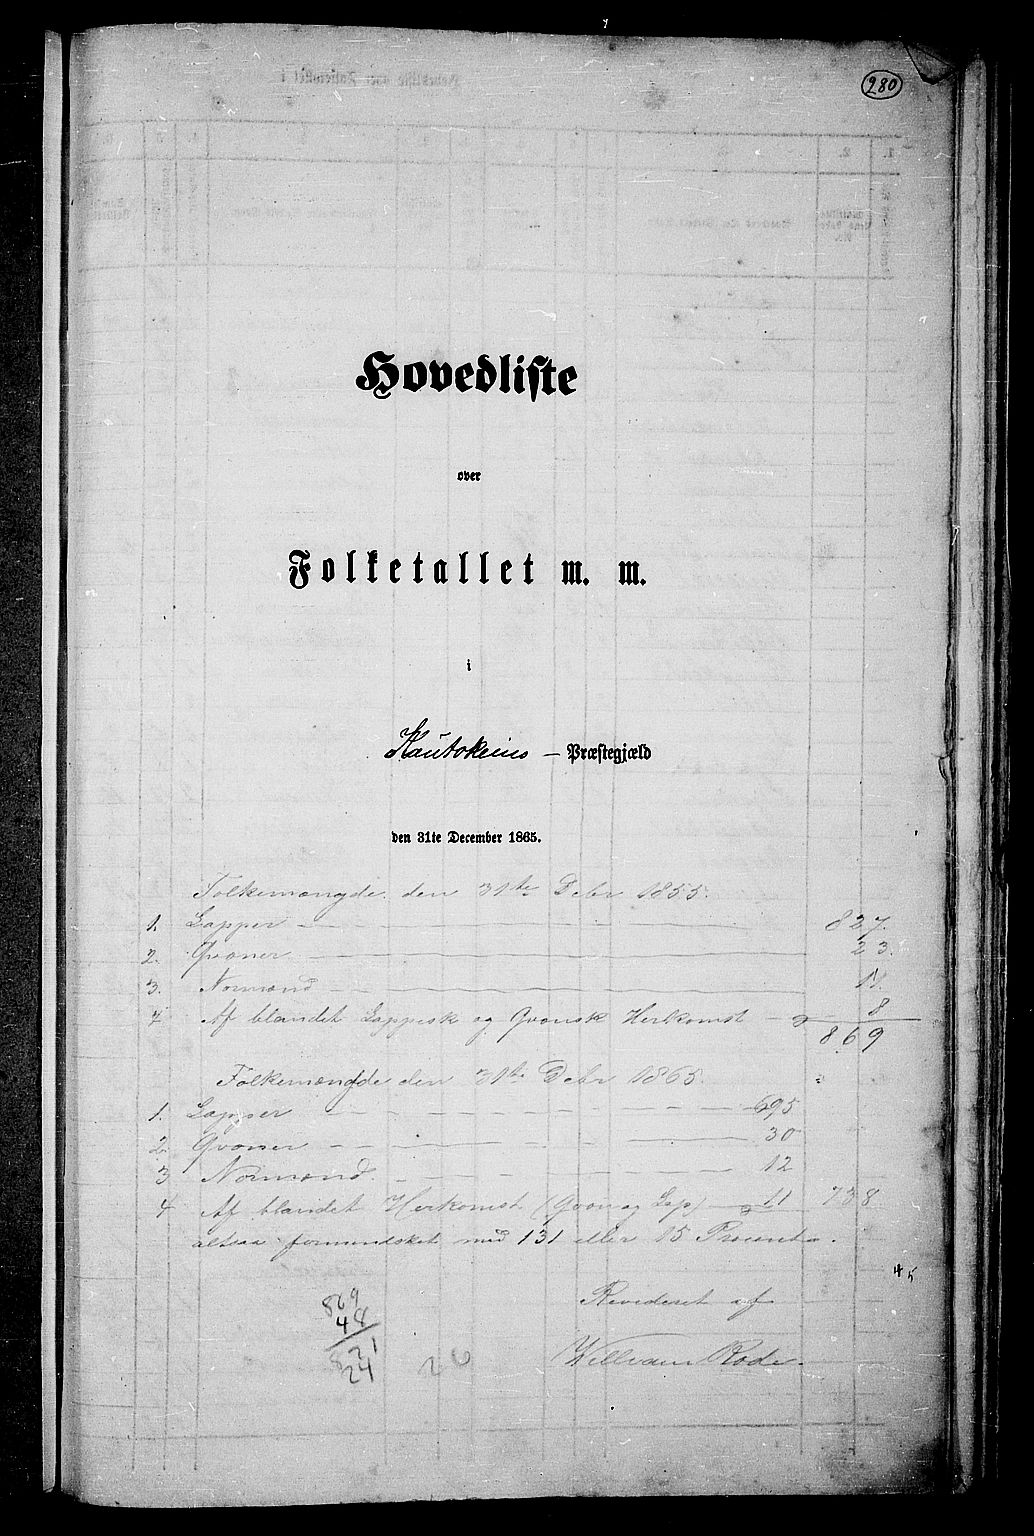 280
Hovedliste
over
Folketallet m. m.
i
Kautokeino – Præstegjæld
den 31te December 1865.
Folkemængde den 31te Debr 1855.
1. Lapper — 827.
2. Qvæner — 23.
3. Normænd — 11.
4 Af blandet Lappisk og Qvænsk Herkomst — 8
869
Folkemængde den 31te Debr 1865.
1. Lapper — 695
2. Qvæner — 30
3 Normænd. — 12
4 Af blandet Herkomst (Qvæn og Lap) — 11 738
altsaa formindsket med 131 eller 15 Procent.
45
Revideret af
William Rode.
869
48
821
24
26